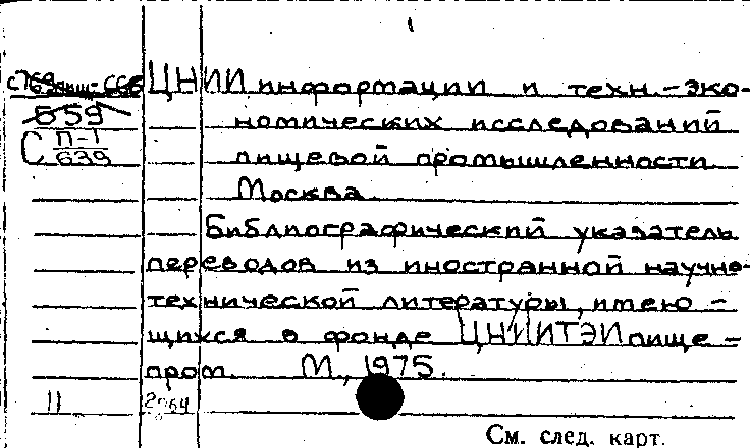 1
ЦНИИ информации и техн.-эко-
номических исследований
С П-1/639
пищевой промышленности.
Москва.
Библиографический указатель
переводов из иностранной научно-
технической литературы, имею-
щихся в фонде ЦНИИТЭИпище-
пром. М., 1975.
11
См. след. карт.